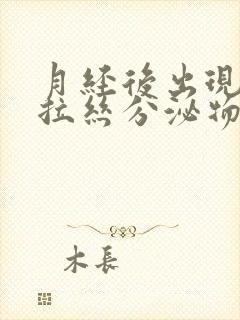 月經後出現
拉絲分泌物
木長